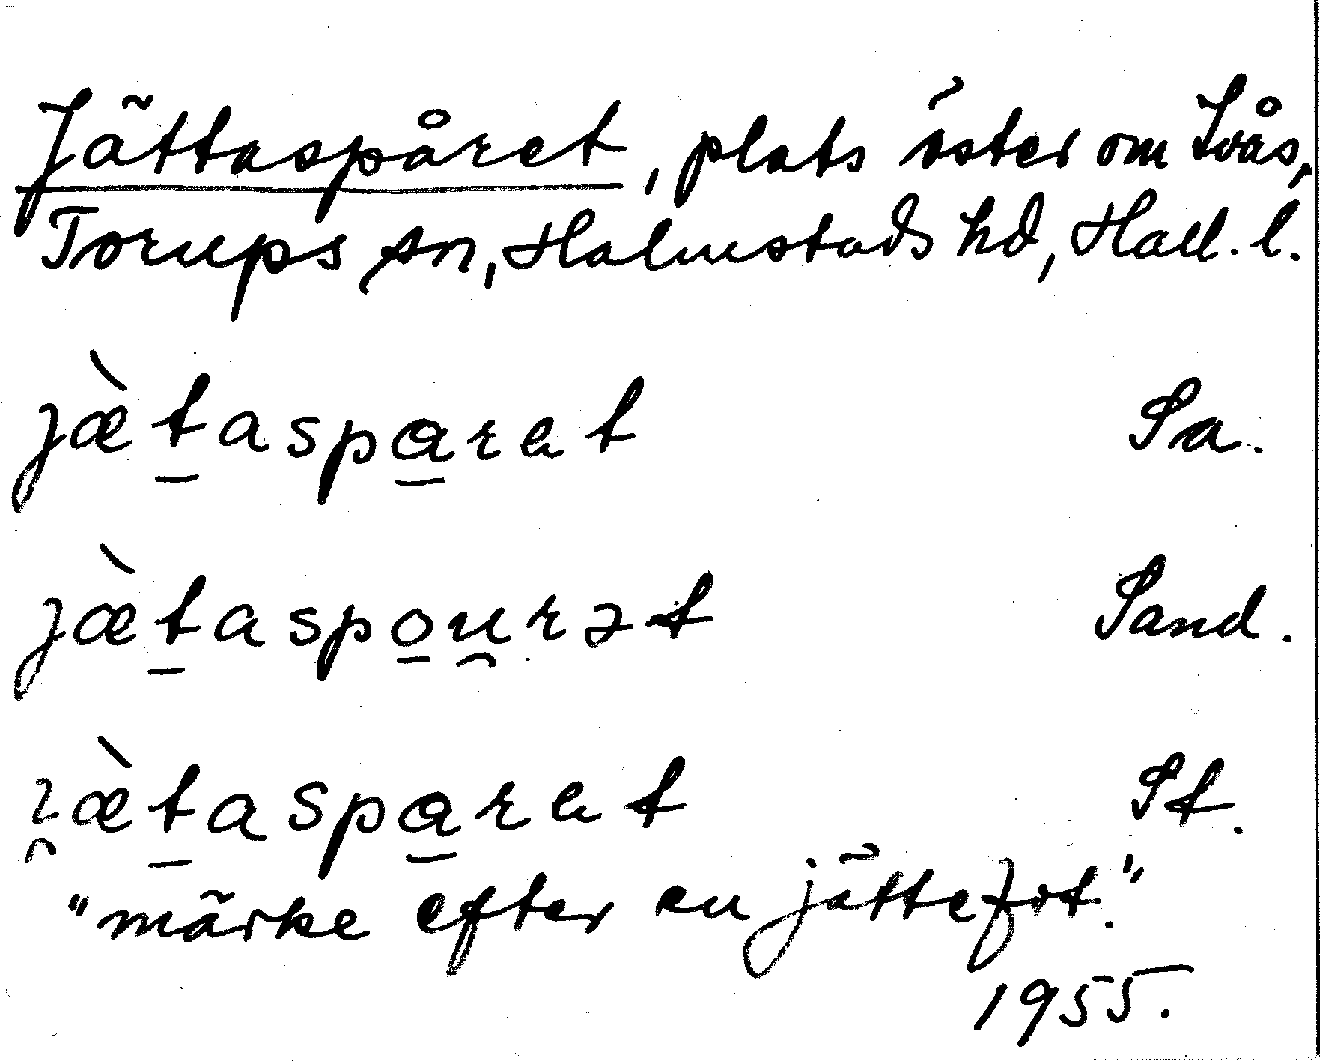 Jättaspåret, plats öster om Svås,
Torups sn, Halmstads hd, Hall. l.
jæ̀t̠aspa̠ret Sa.
jæ̀t̠aspo̠u̯rət Sand.
i̯æ̀t̠aspa̠ret St.
"märke efter en jättefot."
1955.